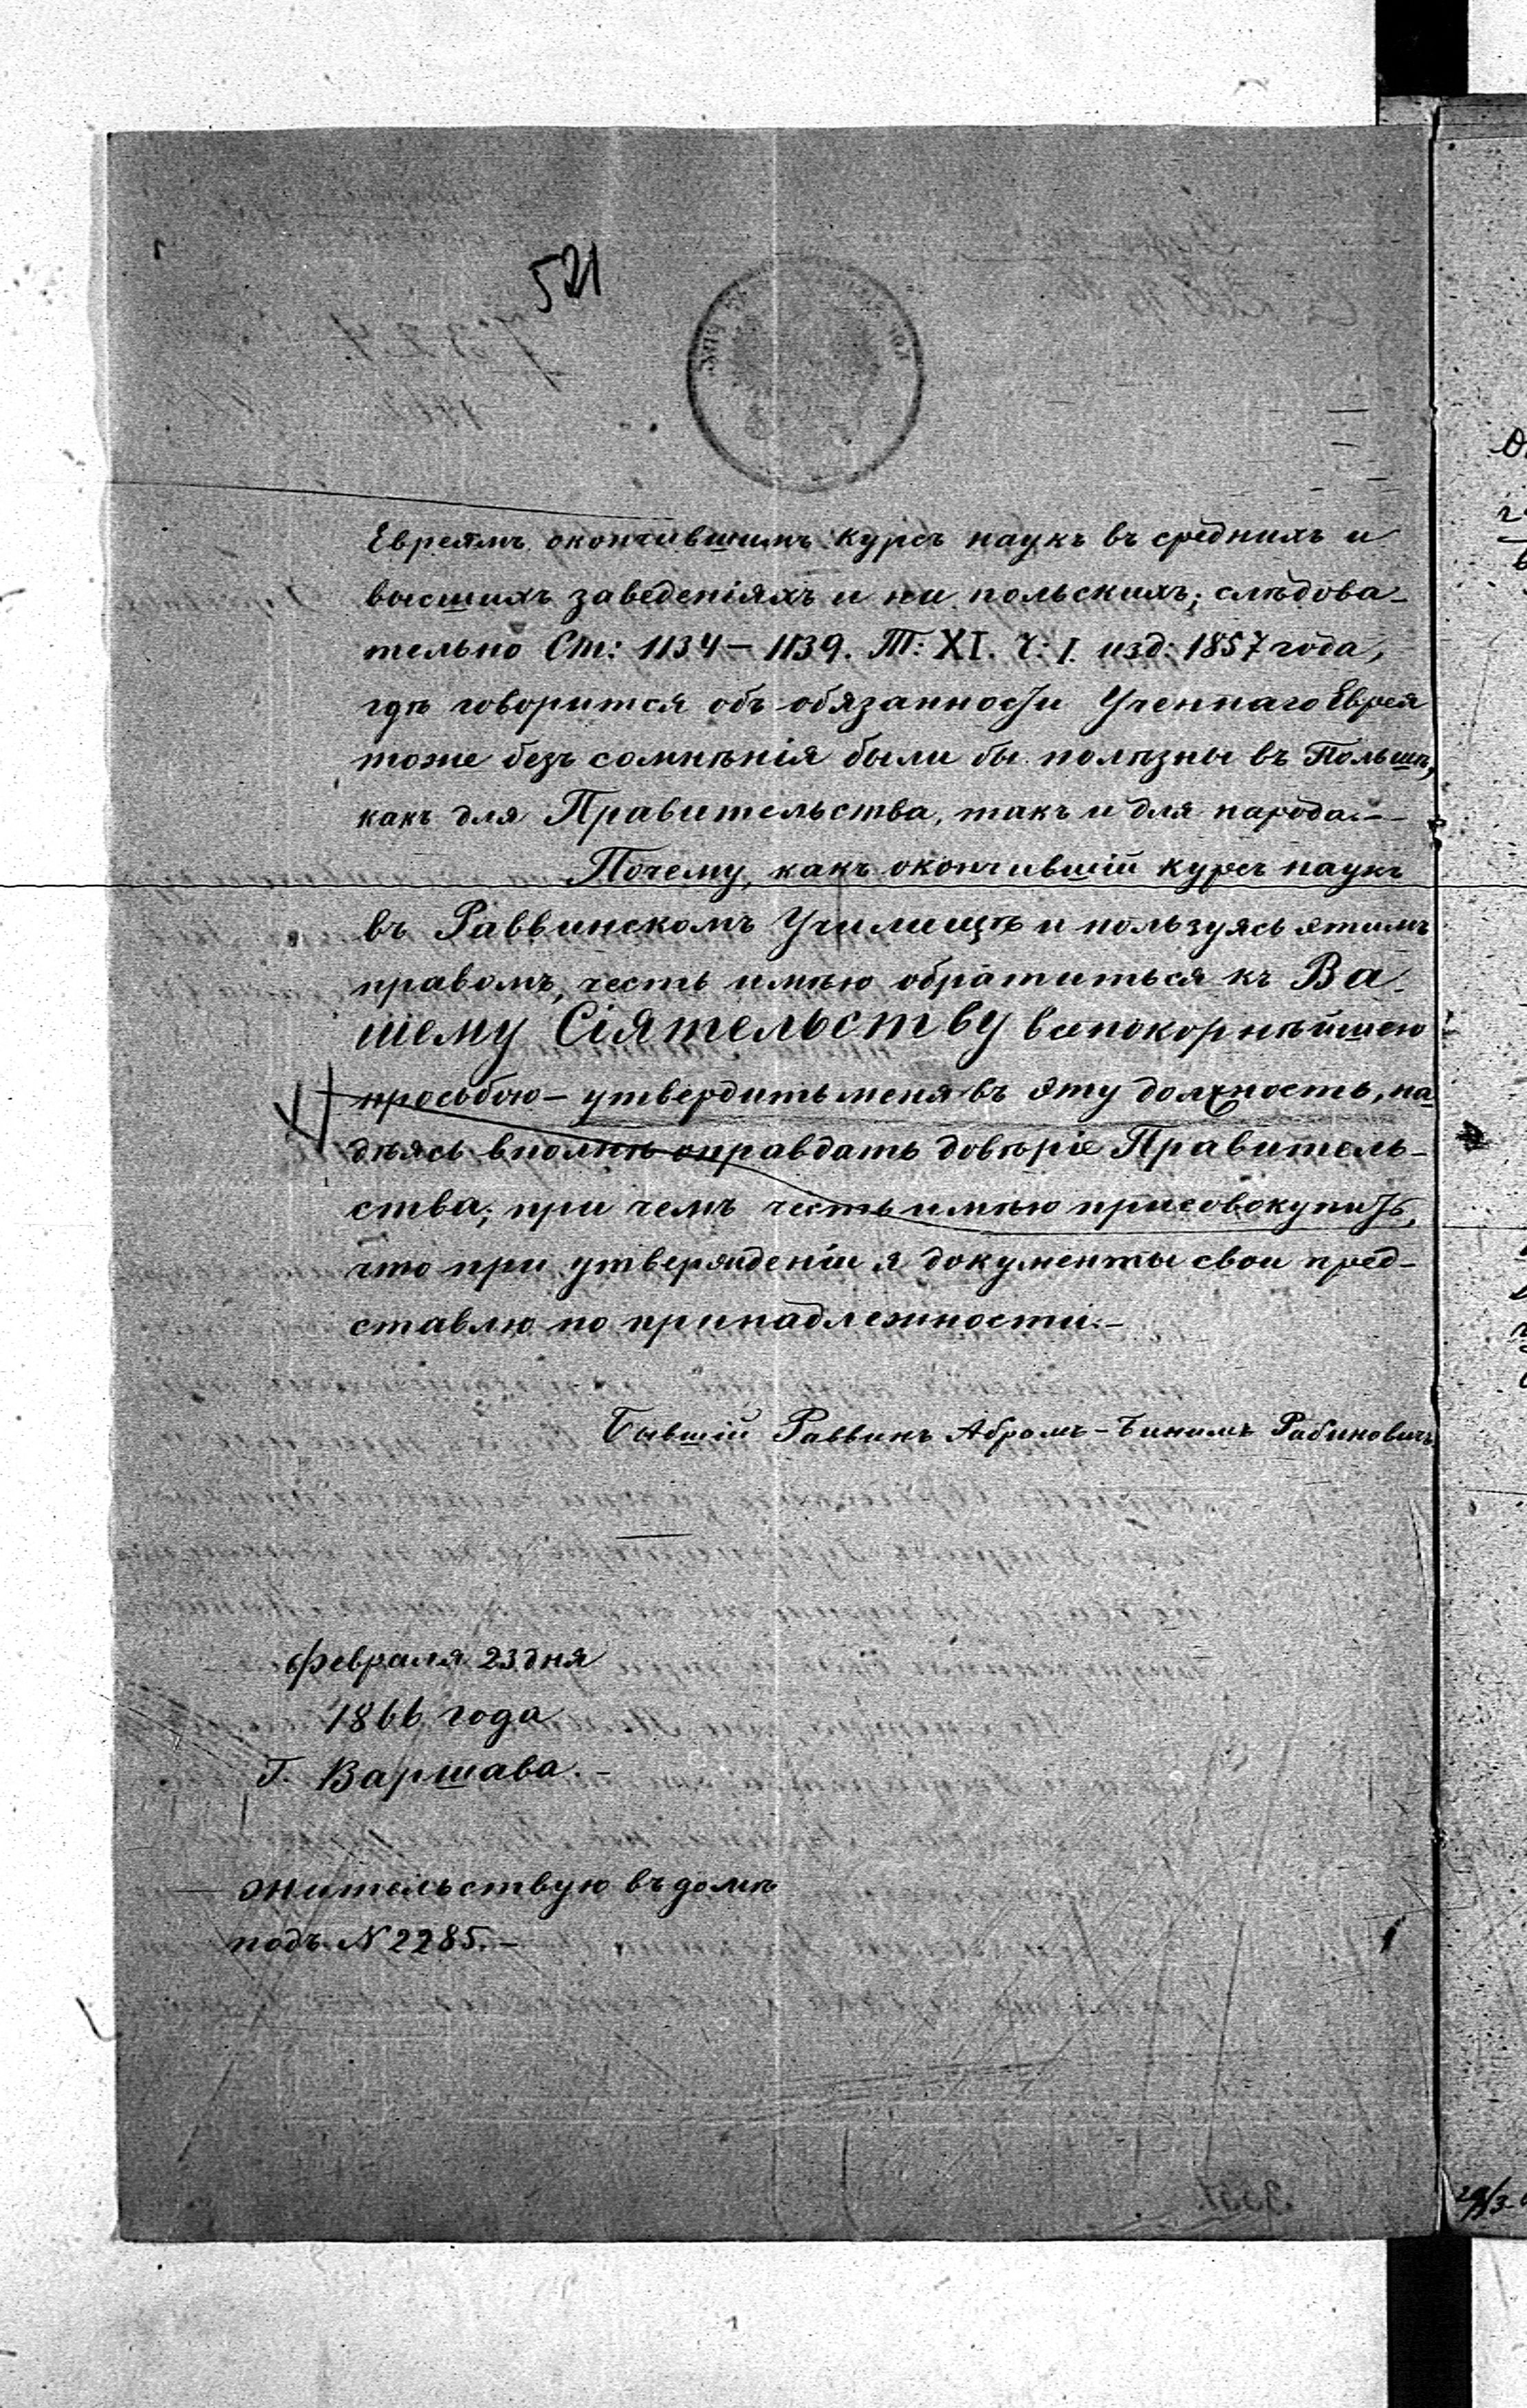 521
Евреямъ окончившимъ курсъ наукъ въ среднихъ и
высшихъ заведеніяхъ и не польскихъ; слѣдова-
тельно Ст: 1134 – 1139. Т: XI. Ч: I. изд: 1857 года,
гдѣ говорится объ обязанности Ученнаго Еврея
тоже безъ сомнѣнія были бы полѣзны въ Польшѣ,
какъ для Правительства, такъ и для народа.–
Почему, какъ окончившій курсъ наукъ
въ Раввинскомъ Училищѣ и пользуясь этимъ
правомъ, честь имѣю обратиться къ Ва-
шему Сіятельству всепокорнѣйшею
прозьбою – утвердить меня въ эту должность, на
дѣясь вполнѣ оправдать довѣріе Правитель-
ства; при чемъ честь имѣю присовокупить,
что при утвержденіи я документы свои пред-
ставлю по принадлежности.–
Бывшій Раввинъ Абромъ-Бинимъ Рабиновичъ
Февраля 23 дня
1866 года
Г. Варшава.–
Жительствую въ домѣ
подъ N 2285.–